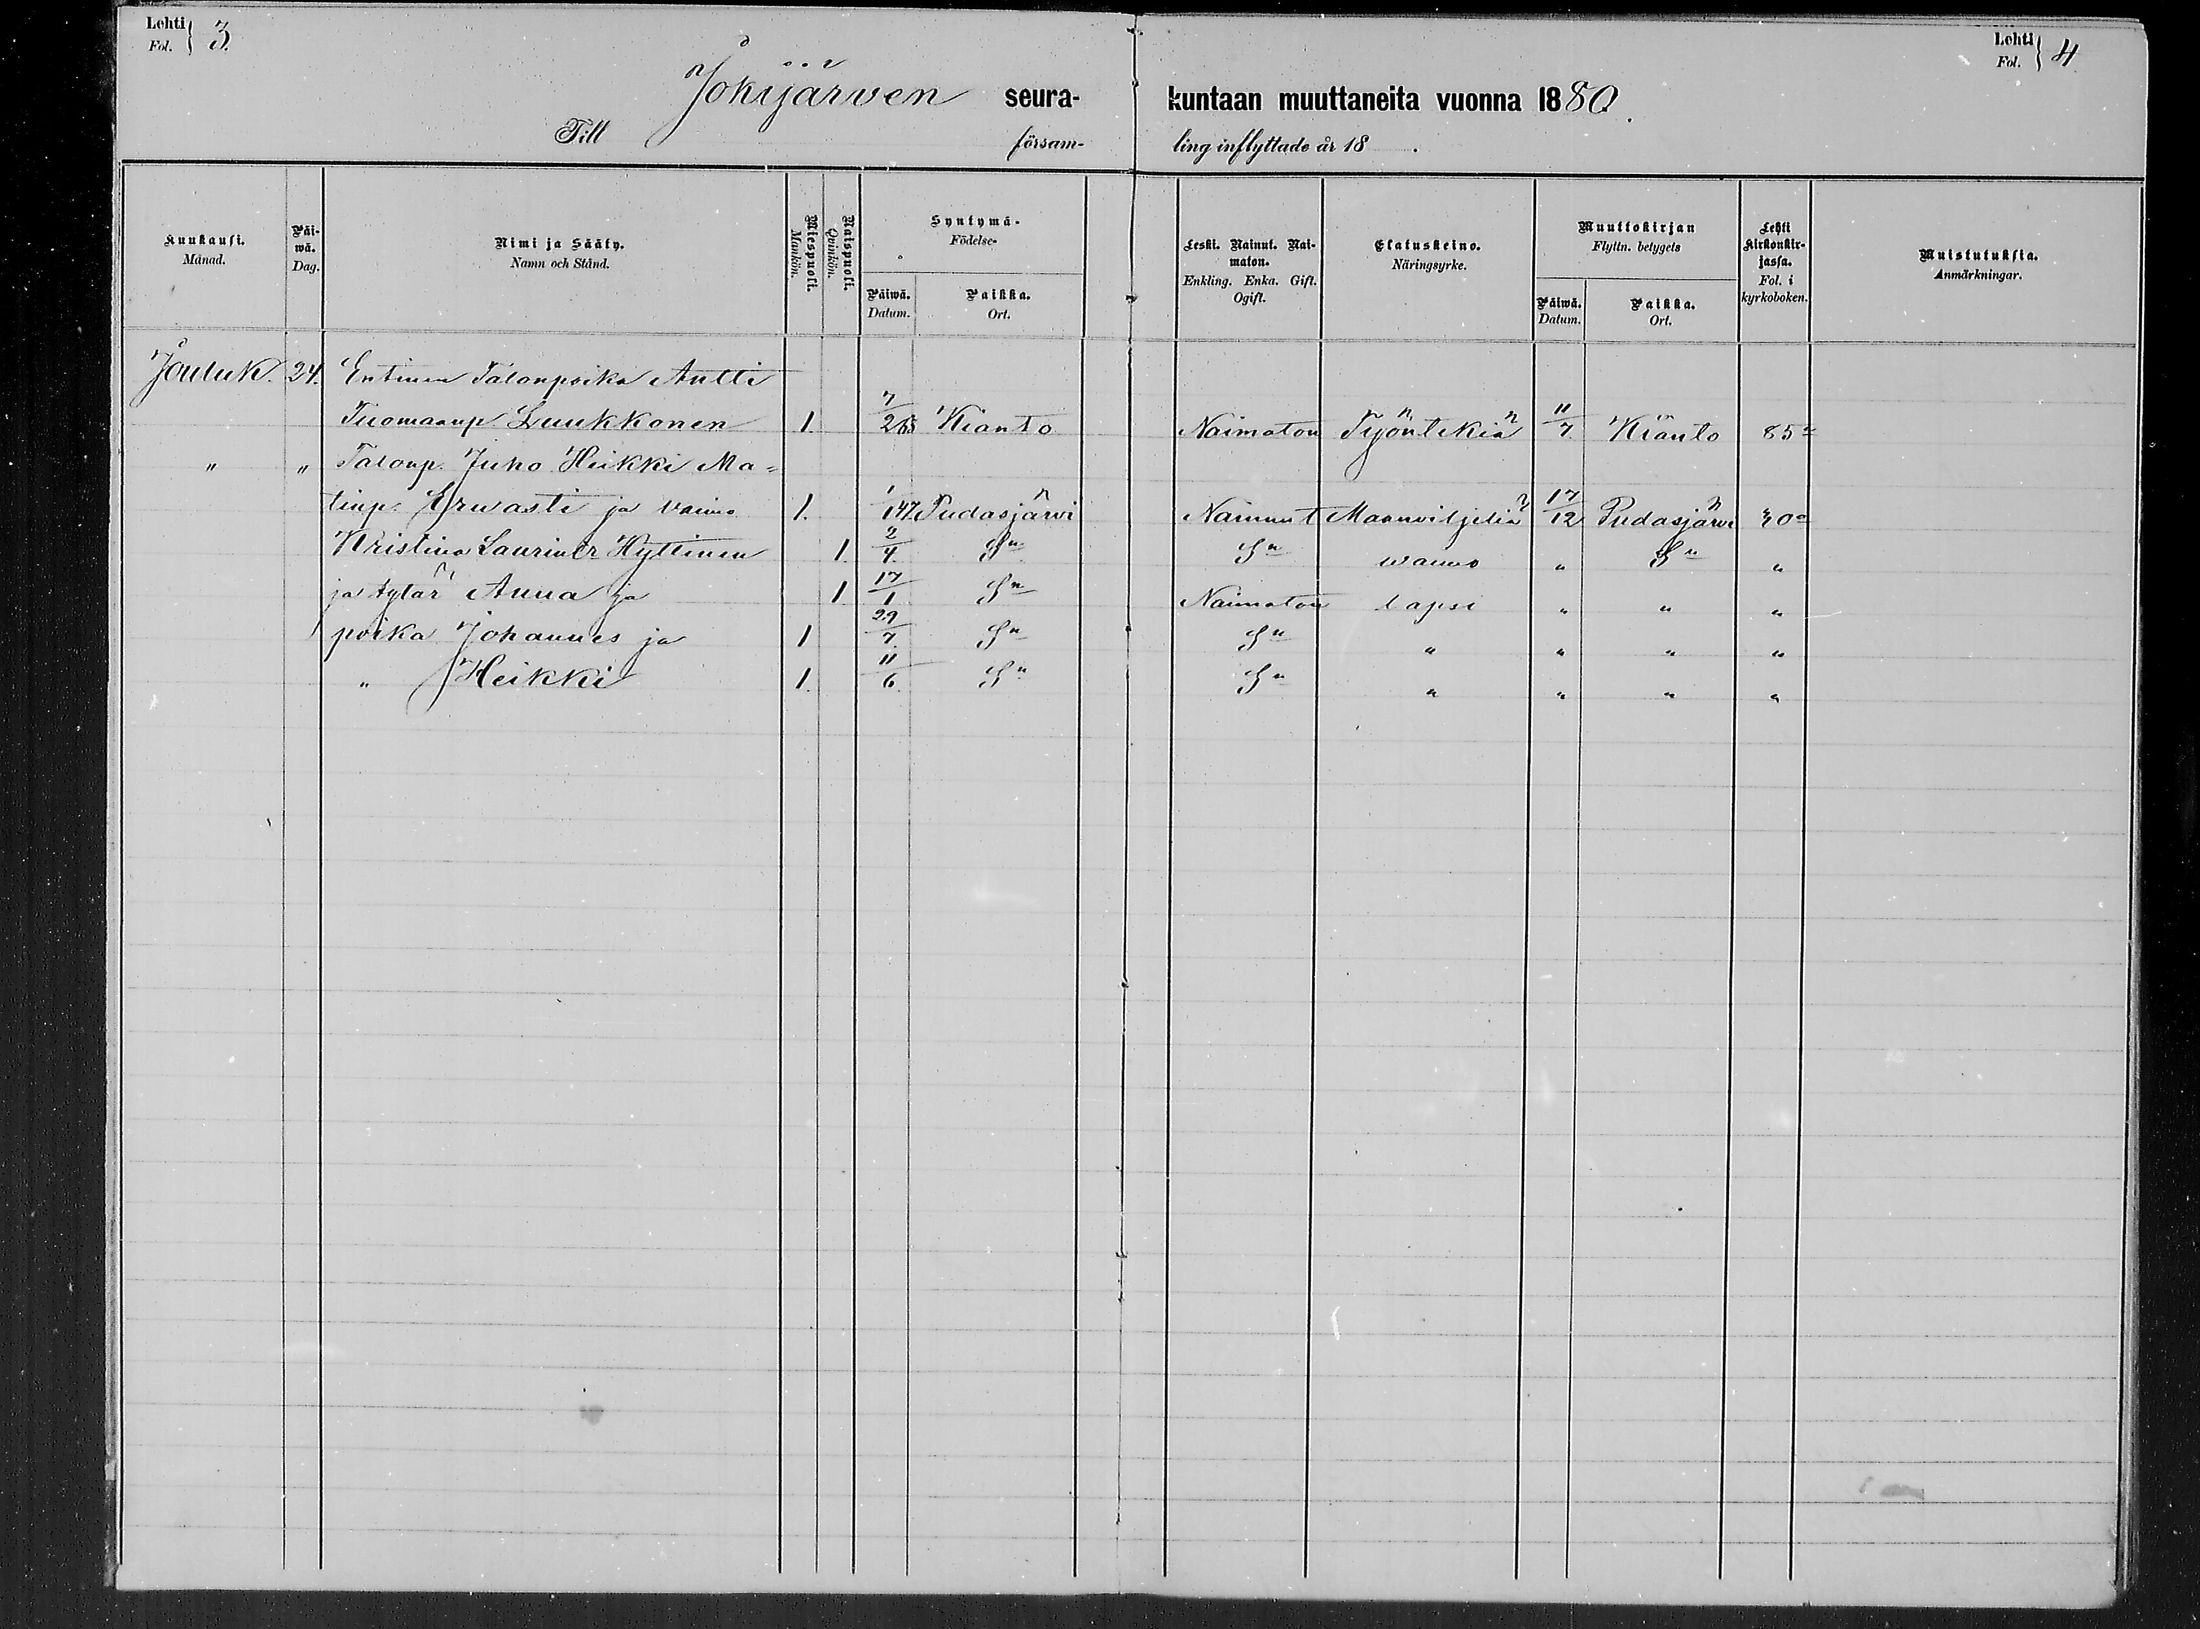 Lehti Fol. 3
Lehti Fol. 4
Jokijärven seura- kuntaan muuttaneita vuonna 1880.
Till församling inflyttade år 18 .
Kuukausi. Månad.
Päiwä. Dag.
Nimi ja Sääty. Namn och Stånd.
Miespuoli. Mankön.
Naispuoli. Qvinkön.
Syntymä- Födelse-
Päiwä. Datum.
Paikka. Ort.
Leski. Nainut. Naimaton. Enkling. Enka. Gift. Ogift.
Elatuskeino. Näringsyrke.
Muuttokirjan Flyttn. betygets
Päiwä. Datum.
Paikka. Ort.
Lehti Kirkonkirjassa. Fol. i kyrkoboken.
Muistutuksia. Anmärkningar.
Jouluk. 24. Entinen Talonpoika Antti
Tuomaanp Luukkonen 1. 7/2 Kianto Naimaton Työntekiä 11/7. Kianto 85
" " Talonp. Juho Heikki Ma-
tinp. Erwasti ja vaimo 1. 1/1 47 Pudasjärvi Nainut Maanviljeliä 17/12 Pudasjärvi
Kristina Laurintr Hyttinen 1. 2/4. Sn Sn waimo " Sn "
ja tytär Anna ja 1 17/1 Sn Naimaton lapsi " " "
poika Johannes ja 1 29/7. Sn Sn " " " "
" Heikki 1. 11/6. Sn Sn " " " "